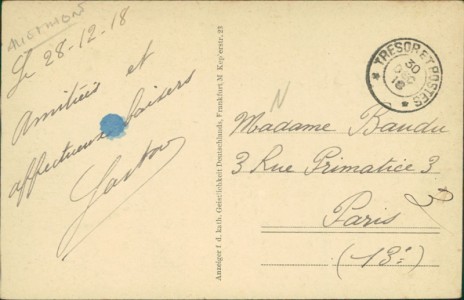 Le 28-12-18
Amitiés et
affectueux baisers
Gaston
Anzeiger f. d. kath. Geistlichkeit Deutschlands, Frankfurt M. Keplerstr. 23
TRESOR ET POSTES
30
18
Madame Baudu
3 Rue Primatice 3
Paris
(13e)